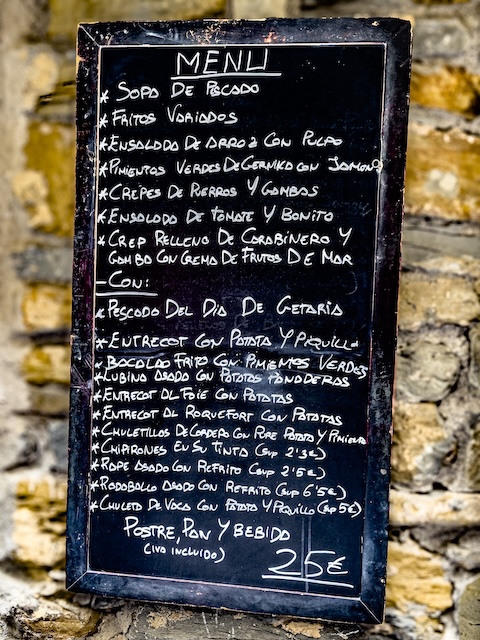 MENU
* SOPA DE PESCADO
* FRITOS VARIADOS
* ENSALADA DE ARROZ CON PULPO
* PIMIENTOS VERDES DE GERNIKA CON JAMON
* CREPES DE PUERROS Y GAMBAS
* ENSALADA DE TOMATE Y BONITO
* CREP RELLENO DE CARABINERO Y
GAMBA CON CREMA DE FRUTOS DE MAR
- CON:
* PESCADO DEL DIA DE GETARIA
* ENTRECOT CON PATATA Y PIQUILLO
* BACALAO FRITO CON PIMIENTOS VERDES
* LUBINA ASADA CON PATATAS PANADERAS
* ENTRECOT AL FOIE CON PATATAS
* ENTRECOT AL ROQUEFORT CON PATATAS
* CHULETILLAS DE CORDERO CON PURE PATATA Y PIMIENTO
* CHIPIRONES EN SU TINTA (SUP 2'3€)
* RAPE ASADO CON REFRITO (SUP 2'5€)
* RODABALLO ASADO CON REFRITO (SUP 6'5€)
* CHULETA DE VACA CON PATATA Y PIQUILLO (SUP 5€)
POSTRE, PAN Y BEBIDA
(IVA INCLUIDO)
25€